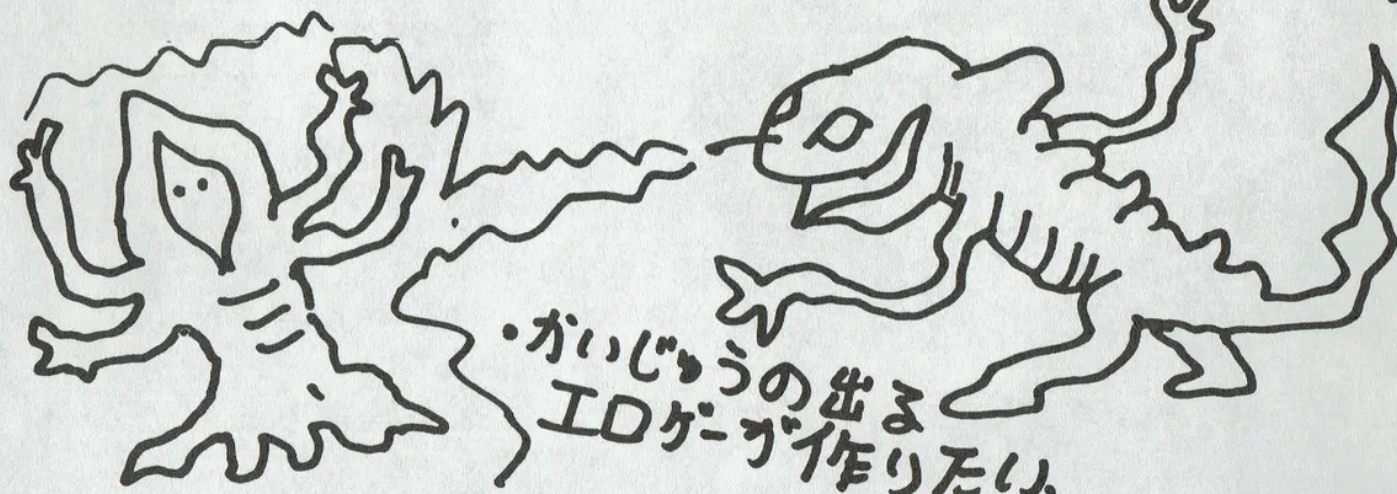 ・かいじゅうの出る
エロゲーが作りたい。